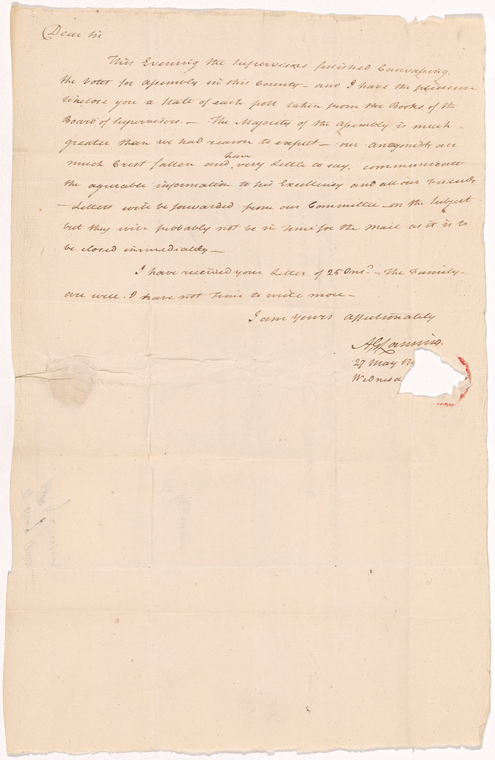 Dear Sir
This Evening the Supervisors finished Canvassing
the Votes for Assembly in this County – and I have the pleasure
inclose you a State of each poll taken from the Books of the
Board of Supervisors – The Majority of the Assembly is much
greater than we had reason to expect – our antagonists are
much Crest fallen and have very little to say. communicate
the agreeable information to his Excellency and all our Friends
– Letters will be forwarded from our Committee on the Subject
but they will probably not be in time for the Mail as it is to
be closed immediately –
I have received your Letter of 25 Inst. – The Family
are well. I have not time to write more –
I am Yours Affectionately
A G Lansing
27 May
Wednesd